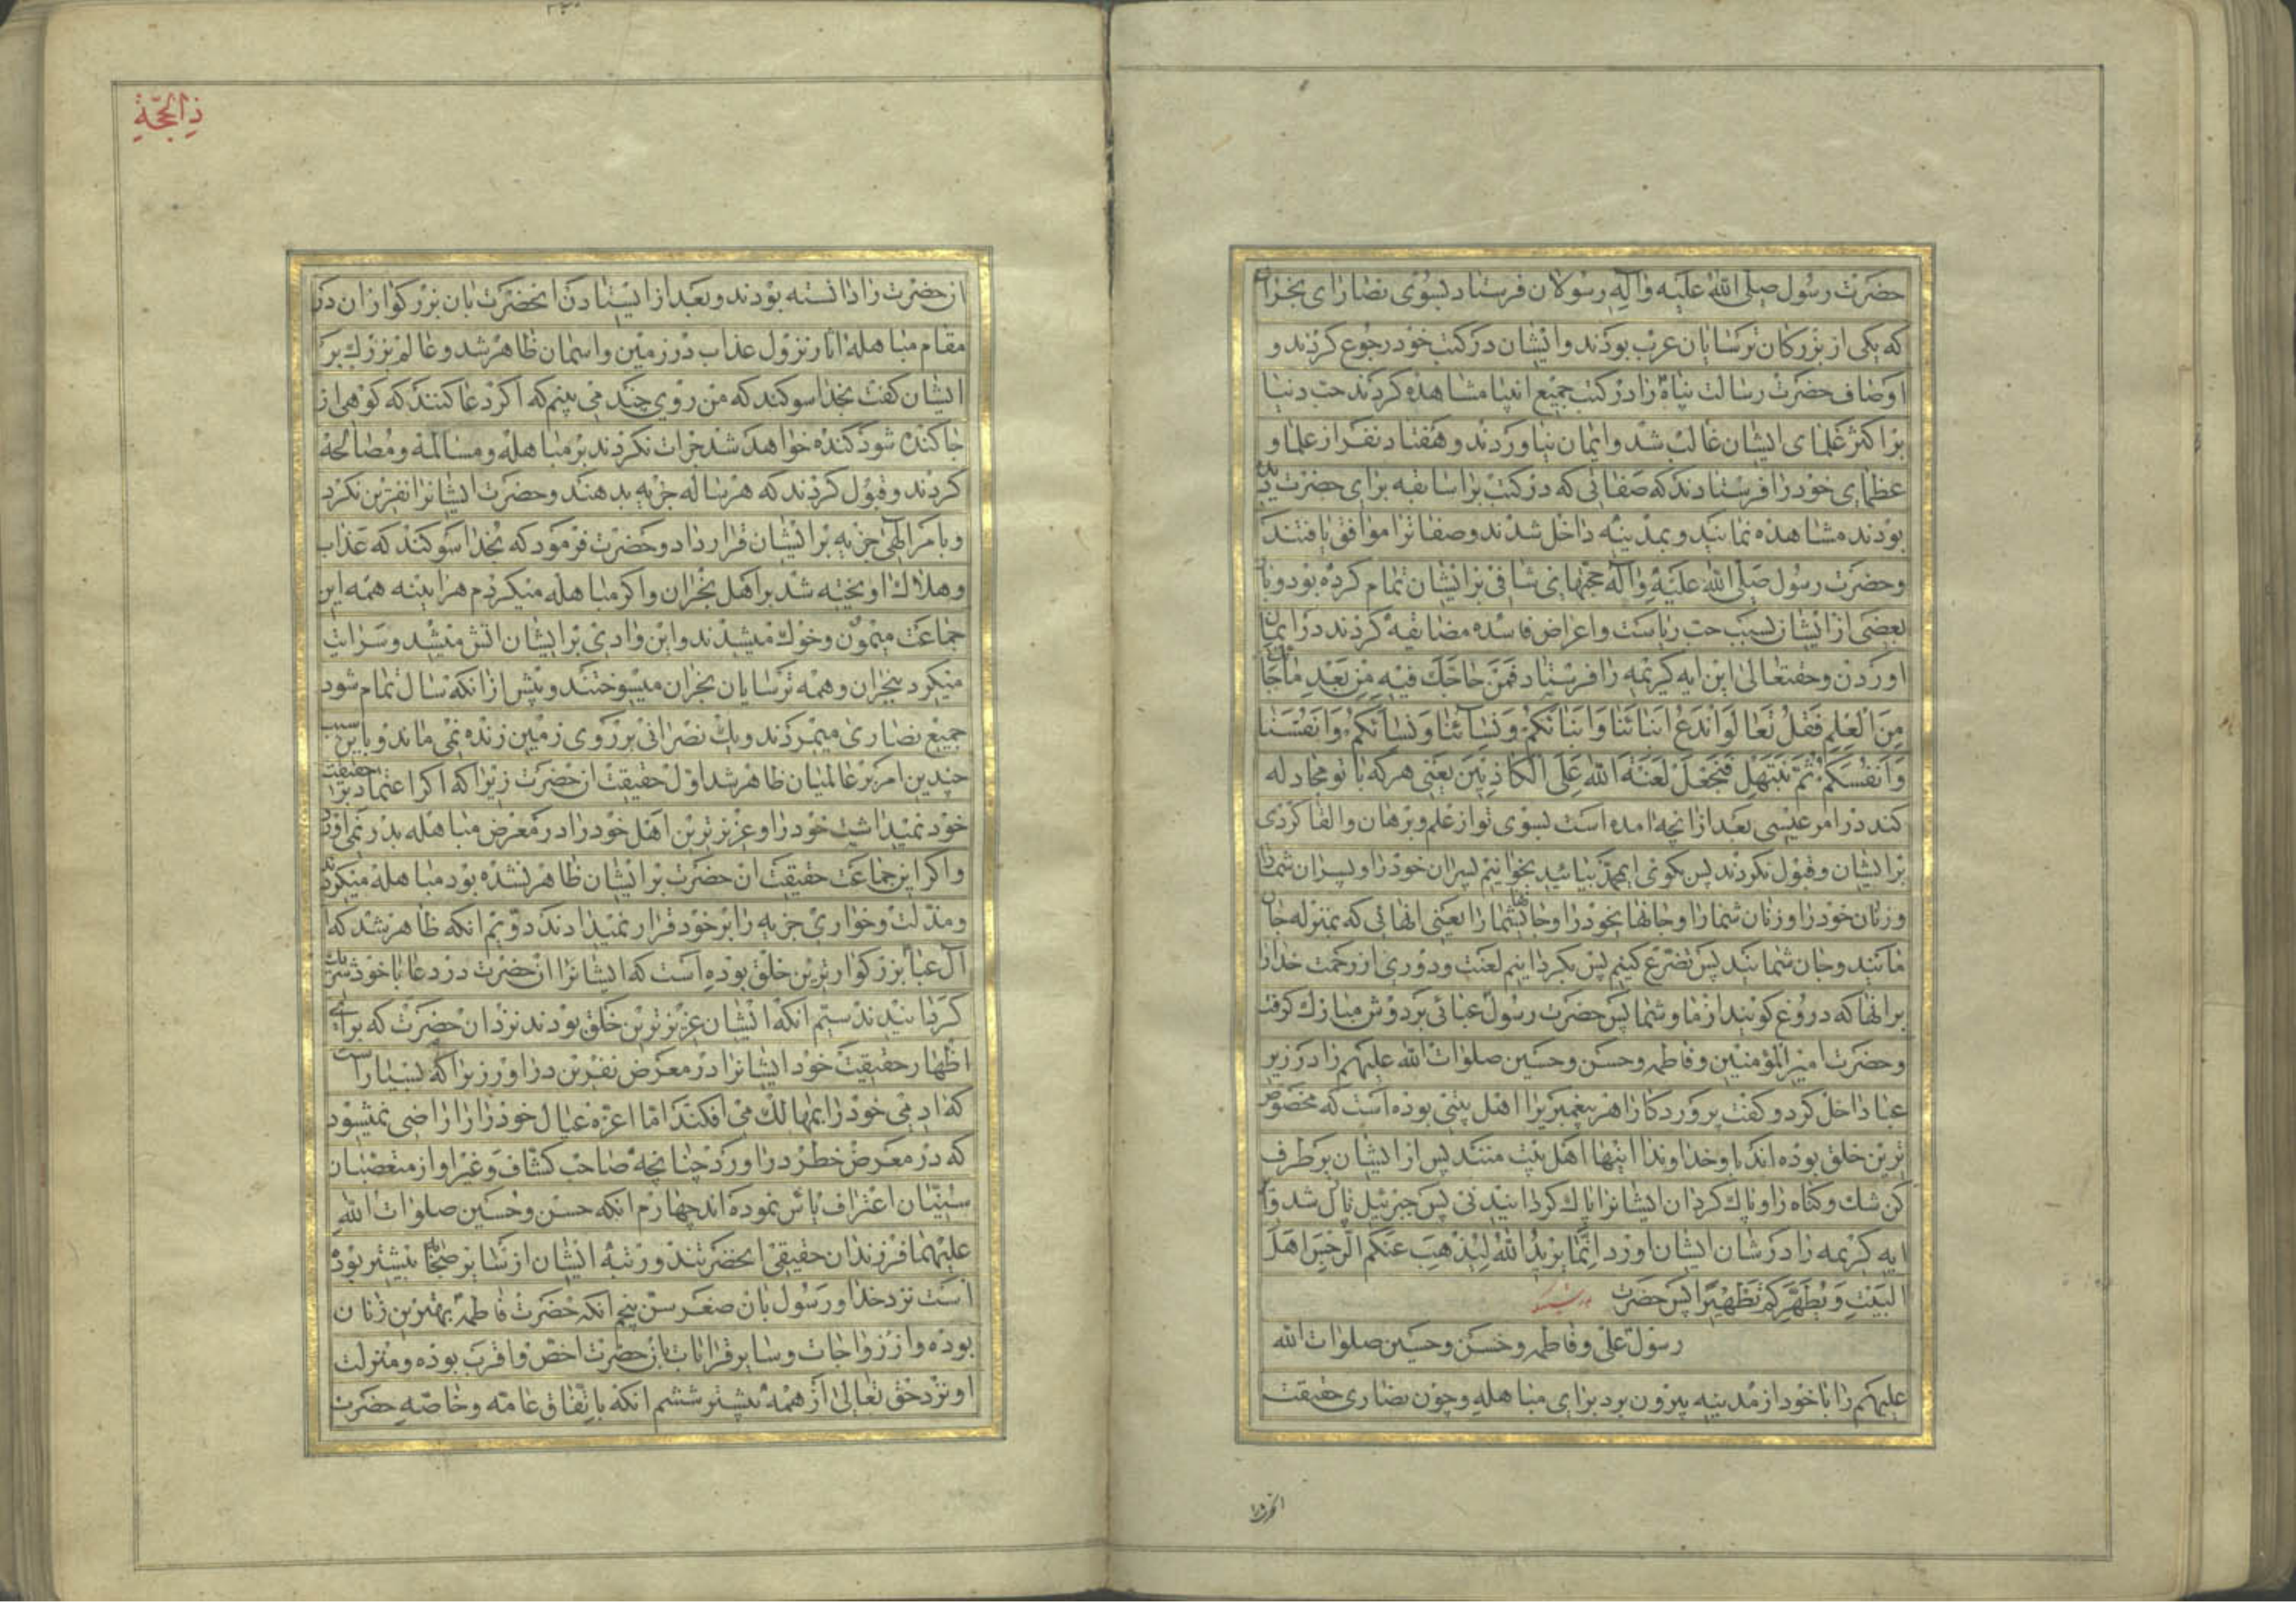 حضرت رسول صلی الله علیه وآله رسولان فرستاد بسوی نصارای نجران
که یکی از بزرکان ترسایان عرب بودند وایشان در کتب خود رجوع کردند و
اوصاف حضرت رسالت پناه را در کتب جمیع انبیا مشاهده کردند حب دنیا
بر اکثر علمای ایشان غالب شد وایمان نیاوردند وهفتاد نفر از علما و
عظمای خود را فرستادند که صفاتی که در کتب برا سابقه برای حضرت
بودند مشاهده نمایند وبمدینه داخل شدند وصفات را موافق یافتند
وحضرت رسول صلی الله علیه وآله حجتهای شافی بر ایشان تمام کرده بود وبا
بعضی از ایشان بسبب حب ریاست واعراض فاسده مضایقه کردند در ایمان
اوردن وحقتعالی این ایه کریمه را فرستاد فمن حاجک فیه من بعد ما جاءک
من العلم فقل تعالوا ندع ابنائنا وابنائکم ونسائنا ونسائکم وانفسنا
وانفسکم ثم نبتهل فنجعل لعنة الله علی الکاذبین یعنی هر که با تو مجادله
کند در امر عیسی بعد از انچه امده است بسوی تو از علم وبرهان والقا کردی
بر ایشان وقبول نکردند پس بکوی ایمحمد بیائید بخوانیم پسران خود را وپسران شما را
وزنان خود را وزنان شما را وجانهای خود را وجانهای شما را یعنی انهائی که بمنزله جان
مایند وجان شمایند پس تضرع کنیم پس بکردانیم لعنت ودوری از رحمت خدا را
بر انها که دروغ کویند از ما وشما پس حضرت رسول عبائی بر دوش مبارک کرفت
وحضرت امیر المؤمنین وفاطمه وحسن وحسین صلوات الله علیهم را در زیر
عبا داخل کرد وکفت پروردکارا هر پیغمبریرا اهل بیتی بوده است که مخصوص
ترین خلق بوده اند باو خداوندا اینها اهل بیت منند پس از ایشان برطرف
کن شک وکناه را وپاک کردان ایشانرا پاک کردانیدنی پس جبرئیل نازل شد وا
ایه کریمه را در شان ایشان اورد انما یرید الله لیذهب عنکم الرجس اهل
البیت ویطهرکم تطهیرا پس حضرت
رسول علی وفاطمه وحسن وحسین صلوات الله
علیهم را با خود از مدینه بیرون برد برای مباهله وچون نصاری حقیقت
ذالحجة
انحضرت را دانسته بودند وبعد از ایستادن انحضرت بان بزرکواران در
مقام مباهله اثار نزول عذاب در زمین واسمان ظاهر شد وعالم بزرک بر
ایشان کفت بخدا سوکند که من روی چند می بینم که اکر دعا کنند که کوهی از
جا کنده شود کنده خواهد شد جرات نکردند بر مباهله ومسالمة ومصالحة
کردند وقبول کردند که هر ساله جزیه بدهند وحضرت ایشانرا نفرین نکرد
وبامر الهی جزیه بر ایشان قرار داد وحضرت فرمود که بخدا سوکند که عذاب
وهلاک اویخته شد بر اهل نجران واکر مباهله میکردم هراینه همه این
جماعت میمون وخوک میشدند واین وادی بر ایشان اتش میشد وسرایت
میکرد بنجران وهمه ترسایان نجران میسوختند وپیش از انکه سال تمام شود
جمیع نصاری میمردند ویک نصرانی بر روی زمین زنده نمی ماند وباین سبب
چندین امر بر عالمیان ظاهر شد اول حقیقت انحضرت زیرا که اکر اعتماد بر حقیقت
خود نمیداشت خود را وعزیزترین اهل خود را در معرض مباهله بدر نمی اورد
واکر این جماعت حقیقت ان حضرت بر ایشان ظاهر نشده بود مباهله میکردند
ومذلت وخواری جزیه را بر خود قرار نمیدادند دویم انکه ظاهر شد که
آل عبا بزرکوارترین خلق بوده است که ایشانرا انحضرت در دعا با خود شریک
کردانیدند سیم انکه ایشان عزیزترین خلق بودند نزد ان حضرت که برای
اظهار حقیقت خود ایشانرا در معرض نفرین دراورد زیرا که بسیار است
که ادمی خود را بمهالک می افکند اما اعزه عیال خود را راضی نمیشود
که در معرض خطر دراورد چنانچه صاحب کشاف وغیر او از متعصبان
سنیان اعتراف باین نموده اند چهارم انکه حسن وحسین صلوات الله
علیهما فرزندان حقیقی انحضرتند ورتبه ایشان از سایر صحابه بیشتر بوده
است نزد خدا ورسول بان صغر سن پنجم انکه حضرت فاطمه بهترین زنان
بوده واز زواجات وسایر قرابات بانحضرت اخص واقرب بوده ومنزلت
او نزد حق تعالی از همه بیشتر ششم انکه باتفاق عامه وخاصه حضرت